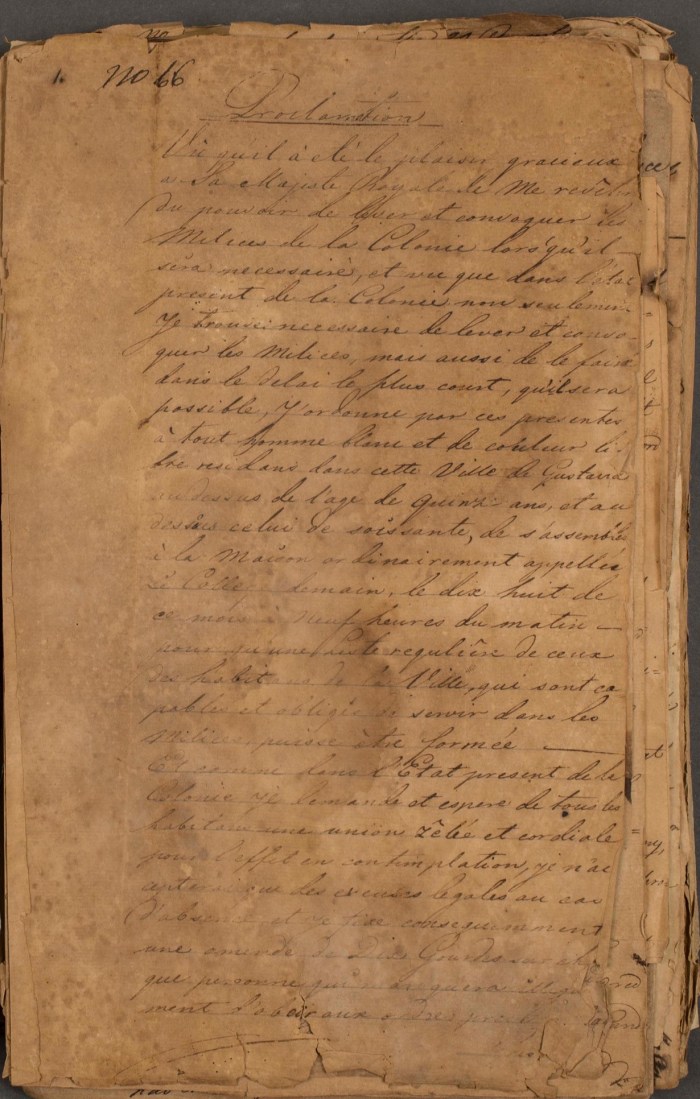 1. No 66
Proclamation
Vû qu'il à été le plaisir gracieux
a Sa Majesté Royale de me revêtir
du pouvoir de lever et convoquer les
Milices de la Colonie lorsqu'il
sera necessaire, et vue que dans l'etat
present de la Colonie non seulement
Je trouve necessaire de lever et convo-
quer les Milices, mais aussi de le faire
dans le delai le plus court, qu'il sera
possible, J'ordonne par ces presentes
à tout homme blanc et de couleur li-
bre residans dans cette Ville de Gustavia
au dessus de l'age de quinze ans, et au
dessous celui de soissante, de s'assembler
à la Maison ordinairement appellée
demain, le dix huit de
ce mois à neuf heures du matin —
pour qu'une liste regulière de ceux
des habitans de la Ville, qui sont ca
pables et obligés de servir dans les
Milices, puisse être formée —
Et comme dans l'Etat present de la
Colonie je demande et espere de tous les
habitans une union zêlée et cordiale
pour l'effet en contemplation, je n'ac
cepterai que les excuses legales au cas
d'absence et je fixe consequemment
une amende de Dix Gourdes sur cha
que personne qui manquera
ment d'obeir aux ordres